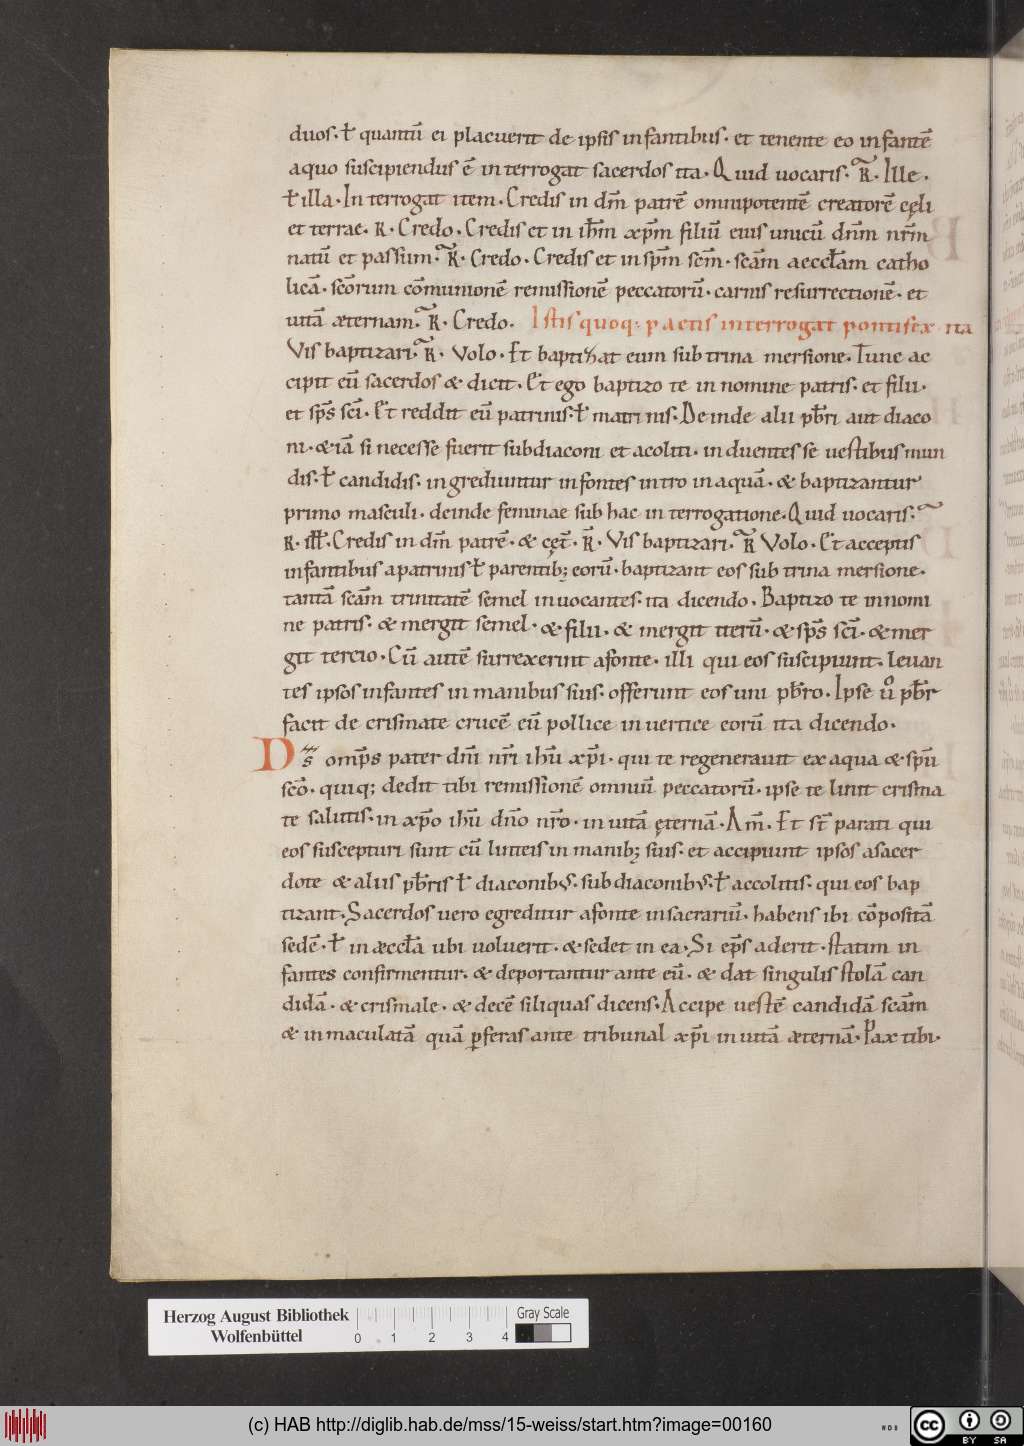 duos· ł quantū ei placuerit de ipsis infantibus· et tenente eo infantē
aquo suscipiendus ē interrogat sacerdos ita· Quid uocaris· R̃· Ille·
ł illa· Interrogat item· Credis in dm̄ patrē omnipotentē creatorē cęli
et terrae· R· Credo· Credis et in ihm̄ xp̄m filiū eius unicū dnm̄ nrm̄
natū et passum· R̃· Credo· Credis et in spm̄ scm̄· scām aecctam̄ catho
licā· scōrum cōmunionē remissionē peccatorū· carnis resurrectionē· et
uitā æternam· R̃· Credo· Istis quoq; pactis interrogat pontifex ita
Vis baptizari· R̃· Volo· Et baptizat eum sub trina mersione· Tunc ac
cipit eū sacerdos & dicit· Et ego baptizo te in nomine patris· et filii·
et sps̄ scī· Et reddit eū patrinis· ł matrinis· Deinde alii pbr̄i aut diaco
ni· & iā si necesse fuerit subdiaconi et acoliti· induentes se uestibus mun
dis· ł candidis· ingrediuntur in fontes intro in aquā· & baptizantur
primo masculi· deinde feminae sub hac interrogatione· Quid uocaris·
R̃· ill̄· Credis in dm̄ patrē· & cęt̄· R̃· Vis baptizari· R̃ Volo· Et acceptis
infantibus apatrinis ł parentib; eorū· baptizant eos sub trina mersione·
tantā scām trinitatē semel inuocantes· ita dicendo· Baptizo te in nomi
ne patris· & mergit semel· & filii· & mergit iterū· & sps̄ scī· & mer
git tercio· Cū autē surrexerint afonte· illi qui eos suscipiunt· leuan
tes ipsos infantes in manibus suis· offerunt eos uni pbr̄o· Ipse ůͦ pbr̄
facit de crismate crucē cū pollice in uertice eorū ita dicendo·
Ds̄ omps̄ pater dnī nrī ihū xpī· qui te regenerauit ex aqua & spū
scō· quiq; dedit tibi remissionē omniū peccatorū· ipse te linit crisma
te salutis· in xpō ihū dnō nrō· in uitā ęternā· Am̄· Et st̄ parati qui
eos suscepturi sunt cū linteis in manib; suis· et accipiunt ipsos asacer
dote & aliis pbr̄is ł diaconibus· subdiaconibus· ł accolitis· qui eos bap
tizant· Sacerdos uero egreditur afonte in sacrariū· habens ibi cōpositā
sedē· ł in æcctā ubi uoluerit· & sedet in ea· Si ep̄s aderit· statim in
fantes confirmentur· & deportantur ante eū· & dat singulis stolā can
didā· & crismale· & decē siliquas dicens· Accipe uestē candidā scām
& inmaculatā quā ꝑferas ante tribunal xpī in uitā æternā· Pax tibi·
Herzog August Bibliothek
Wolfenbüttel
0 1 2 3 4
Gray Scale
(c) HAB http://diglib.hab.de/mss/15-weiss/start.htm?image=00160
cc BY SA